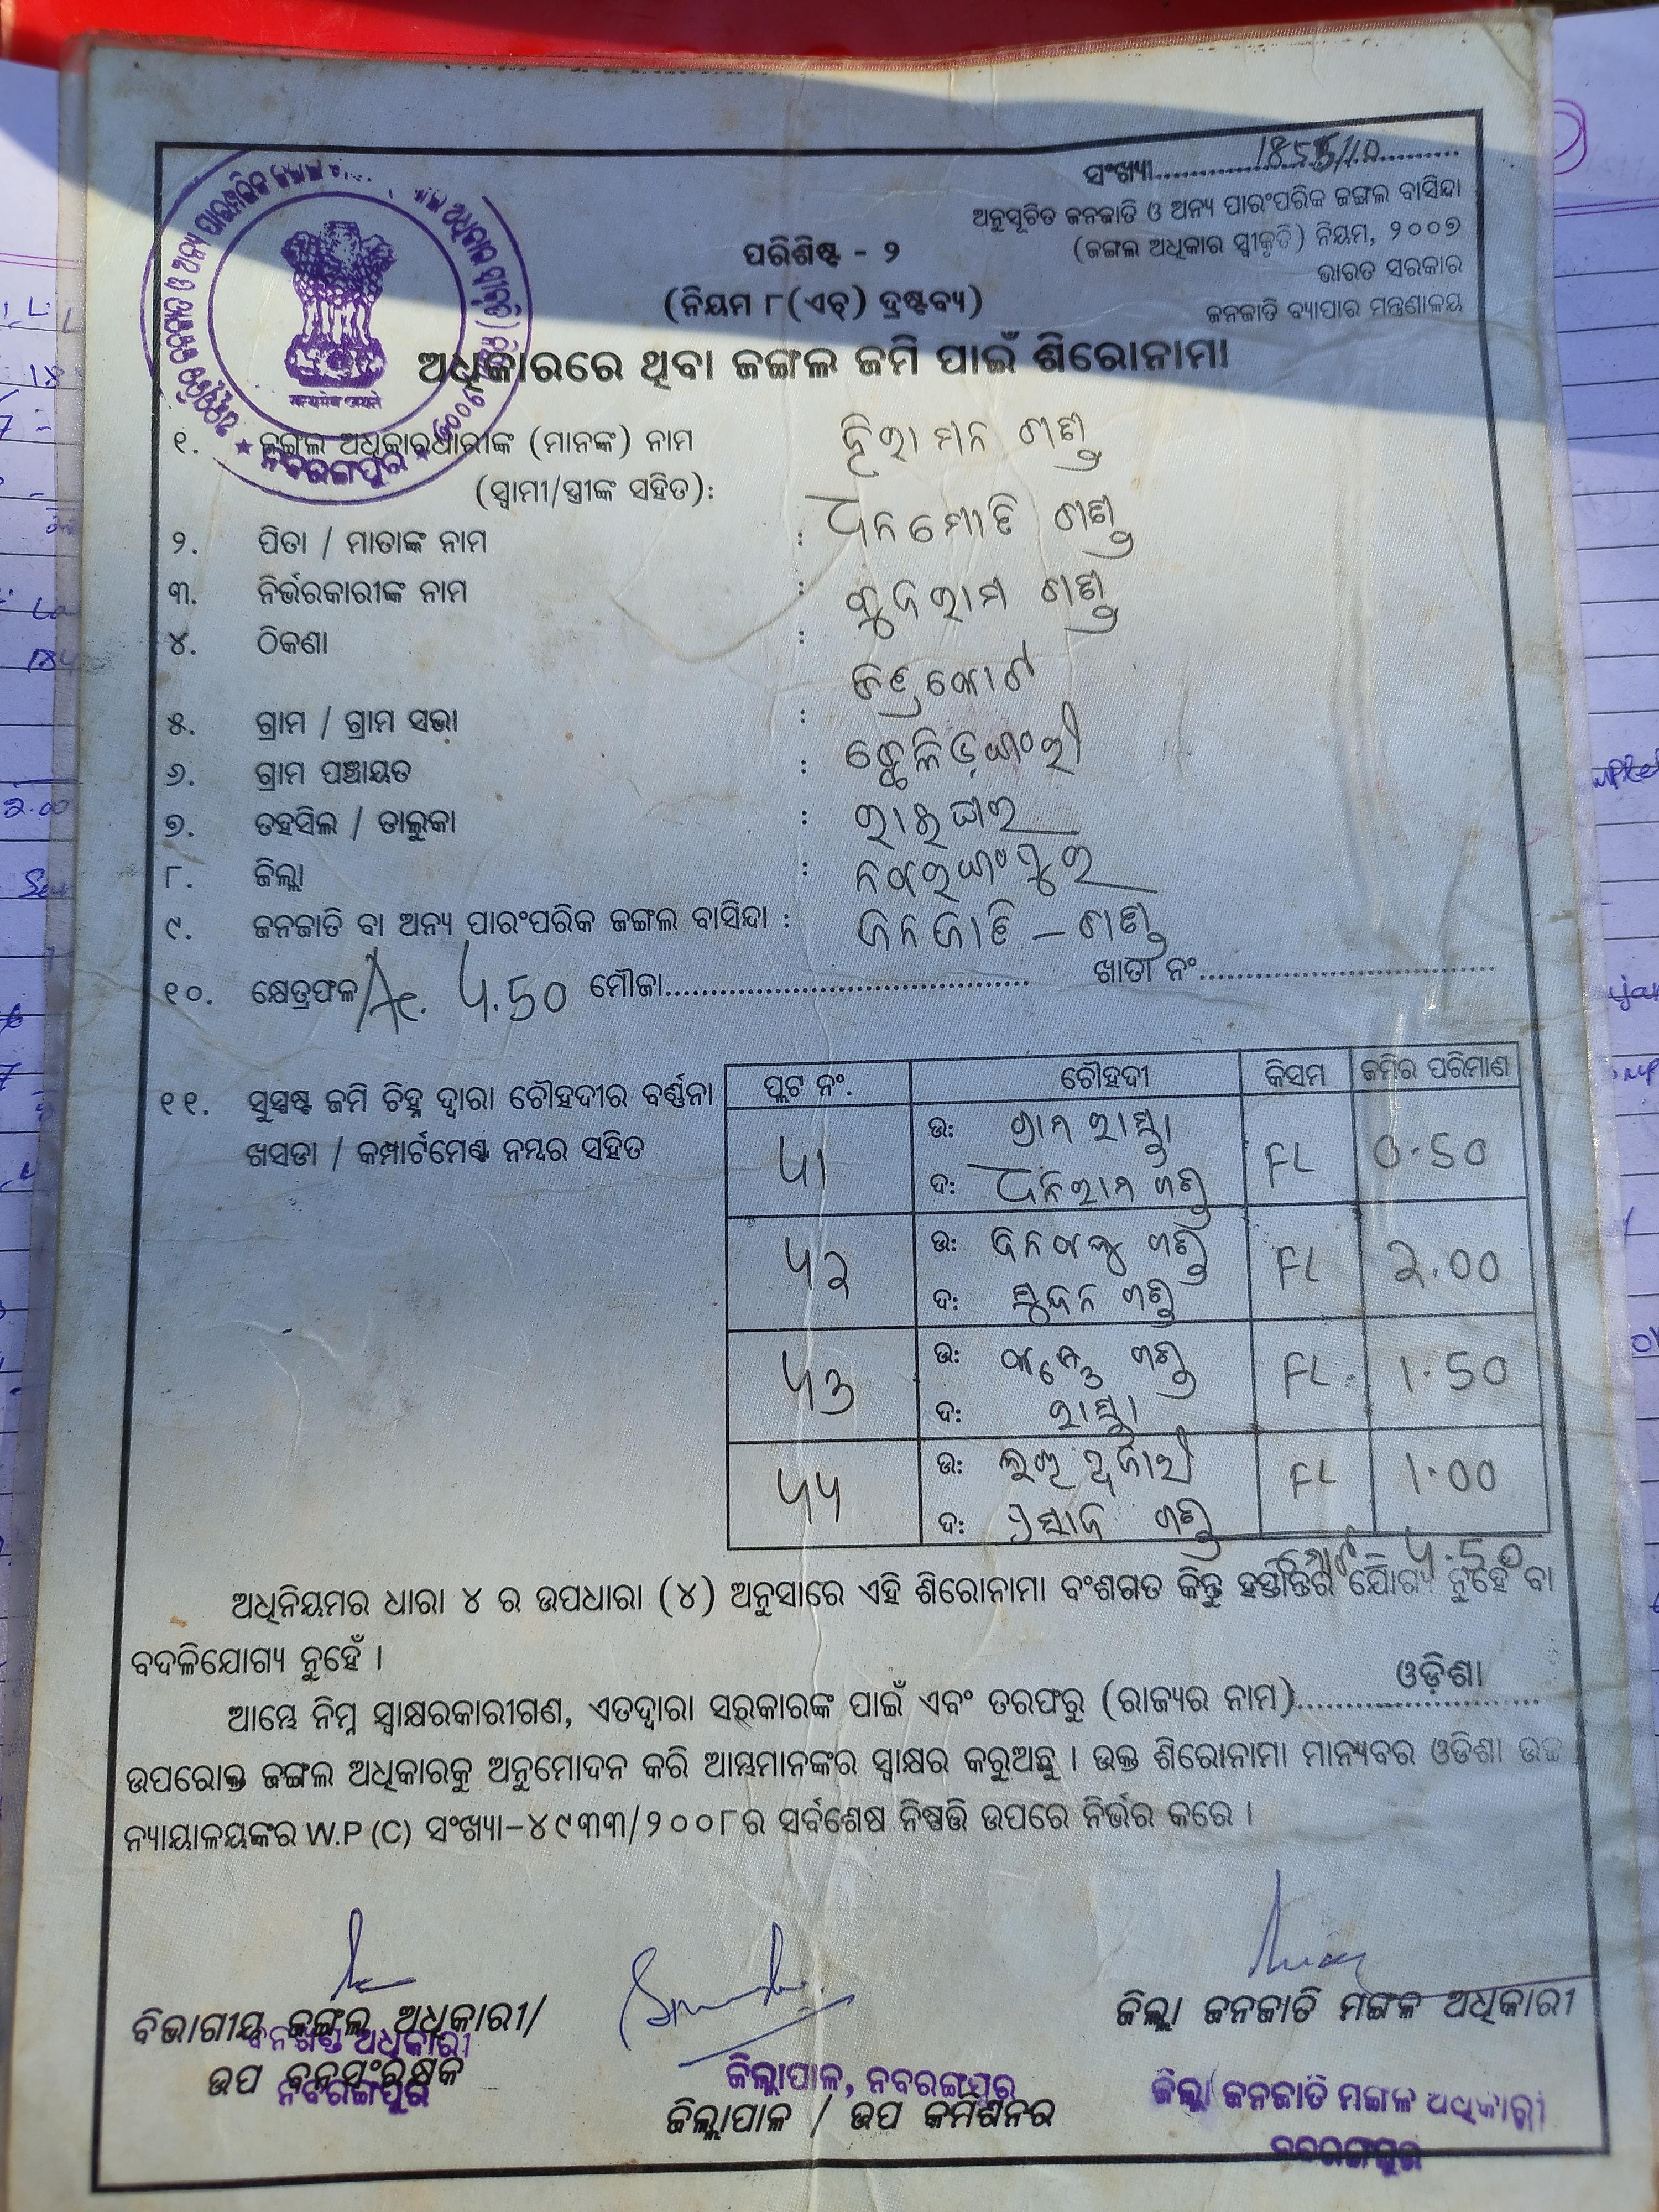 ସଂଖ୍ୟା
ଅନୁସୂଚିତ ଜନଜାତି ଓ ଅନ୍ୟ ପାରଂପରିକ ଜଙ୍ଗଲ ବାସିନ୍ଦା
(ଜଙ୍ଗଲ ଅଧିକାର ସ୍ୱୀକୃତି) ନିୟମ, ୨୦୦୭
ଭାରତ ସରକାର
ଜନଜାତି ବ୍ୟାପାର ମନ୍ତ୍ରଣାଳୟ
ପରିଶିଷ୍ଟ - ୨
(ନିୟମ ୮(ଏଚ୍) ଦ୍ରଷ୍ଟବ୍ୟ)
ଅଧିକାରରେ ଥିବା ଜଙ୍ଗଲ ଜମି ପାଇଁ ଶିରୋନାମା
ନବରଙ୍ଗପୁର
୧. ଜଙ୍ଗଲ ଅଧିକାରଧାରୀଙ୍କ (ମାନଙ୍କ) ନାମ ହିରାମନ ଗଣ୍ଡ
(ସ୍ୱାମୀ/ସ୍ତ୍ରୀଙ୍କ ସହିତ):
ଧନମୋତି ଗଣ୍ଡ
୨. ପିତା / ମାତାଙ୍କ ନାମ :
୩. ନିର୍ଭରକାରୀଙ୍କ ନାମ : ଗଣ୍ଡ
୪. ଠିକଣା :
୫. ଗ୍ରାମ / ଗ୍ରାମ ସଭା :
୬. ଗ୍ରାମ ପଞ୍ଚାୟତ :
୭. ତହସିଲ / ତାଲୁକା : ରାଇଘର
୮. ଜିଲ୍ଲା : ନବରଂଗପୁର
୯. ଜନଜାତି ବା ଅନ୍ୟ ପାରଂପରିକ ଜଙ୍ଗଲ ବାସିନ୍ଦା : ଜନଜାତି – ଗଣ୍ଡ
୧୦. କ୍ଷେତ୍ରଫଳ Ac. 4.50 ମୌଜା ଖାତା ନଂ
୧୧. ସୁସ୍ପଷ୍ଟ ଜମି ଚିହ୍ନ ଦ୍ୱାରା ଚୌହଦୀର ବର୍ଣ୍ଣନା
ଖସଡା / କମ୍ପାର୍ଟମେଣ୍ଟ ନମ୍ବର ସହିତ
ପ୍ଲଟ ନଂ. ଚୌହଦୀ କିସମ ଜମିର ପରିମାଣ
ଉ: ରାସ୍ତା
ଦ: ଧନିରାମ ଗଣ୍ଡ
FL 0.50
ଉ: ଗଣ୍ଡ
ଦ: ଗଣ୍ଡ
FL 2.00
ଉ: ଗଣ୍ଡ
ଦ: ରାସ୍ତା
FL 1.50
ଉ:
ଦ: ଗଣ୍ଡ
FL 1.00
4.50
ଅଧିନିୟମର ଧାରା ୪ ର ଉପଧାରା (୪) ଅନୁସାରେ ଏହି ଶିରୋନାମା ବଂଶଗତ କିନ୍ତୁ ହସ୍ତାନ୍ତର ଯୋଗ୍ୟ ନୁହେଁ ବା
ବଦଳିଯୋଗ୍ୟ ନୁହେଁ ।
ଆମ୍ଭେ ନିମ୍ନ ସ୍ୱାକ୍ଷରକାରୀଗଣ, ଏତଦ୍ୱାରା ସରକାରଙ୍କ ପାଇଁ ଏବଂ ତରଫରୁ (ରାଜ୍ୟର ନାମ) ଓଡ଼ିଶା
ଉପରୋକ୍ତ ଜଙ୍ଗଲ ଅଧିକାରକୁ ଅନୁମୋଦନ କରି ଆମ୍ଭମାନଙ୍କର ସ୍ୱାକ୍ଷର କରୁଅଛୁ । ଉକ୍ତ ଶିରୋନାମା ମାନ୍ୟବର ଓଡିଶା ଉଚ୍ଚ
ନ୍ୟାୟାଳୟଙ୍କର W.P (C) ସଂଖ୍ୟା–୪୯୩୩/୨୦୦୮ର ସର୍ବଶେଷ ନିଷ୍ପତ୍ତି ଉପରେ ନିର୍ଭର କରେ ।
ବିଭାଗୀୟ ଜଙ୍ଗଲ ଅଧିକାରୀ/
ବନଖଣ୍ଡ ଅଧିକାରୀ
ଉପ ବନସଂରକ୍ଷକ
ନବରଙ୍ଗପୁର
ଜିଲ୍ଲାପାଳ, ନବରଙ୍ଗପୁର
ଜିଲ୍ଲାପାଳ / ଉପ କମିଶନର
ଜିଲ୍ଲା ଜନଜାତି ମଙ୍ଗଳ ଅଧିକାରୀ
ଜିଲ୍ଲା ଜନଜାତି ମଙ୍ଗଳ ଅଧିକାରୀ
ନବରଙ୍ଗପୁର